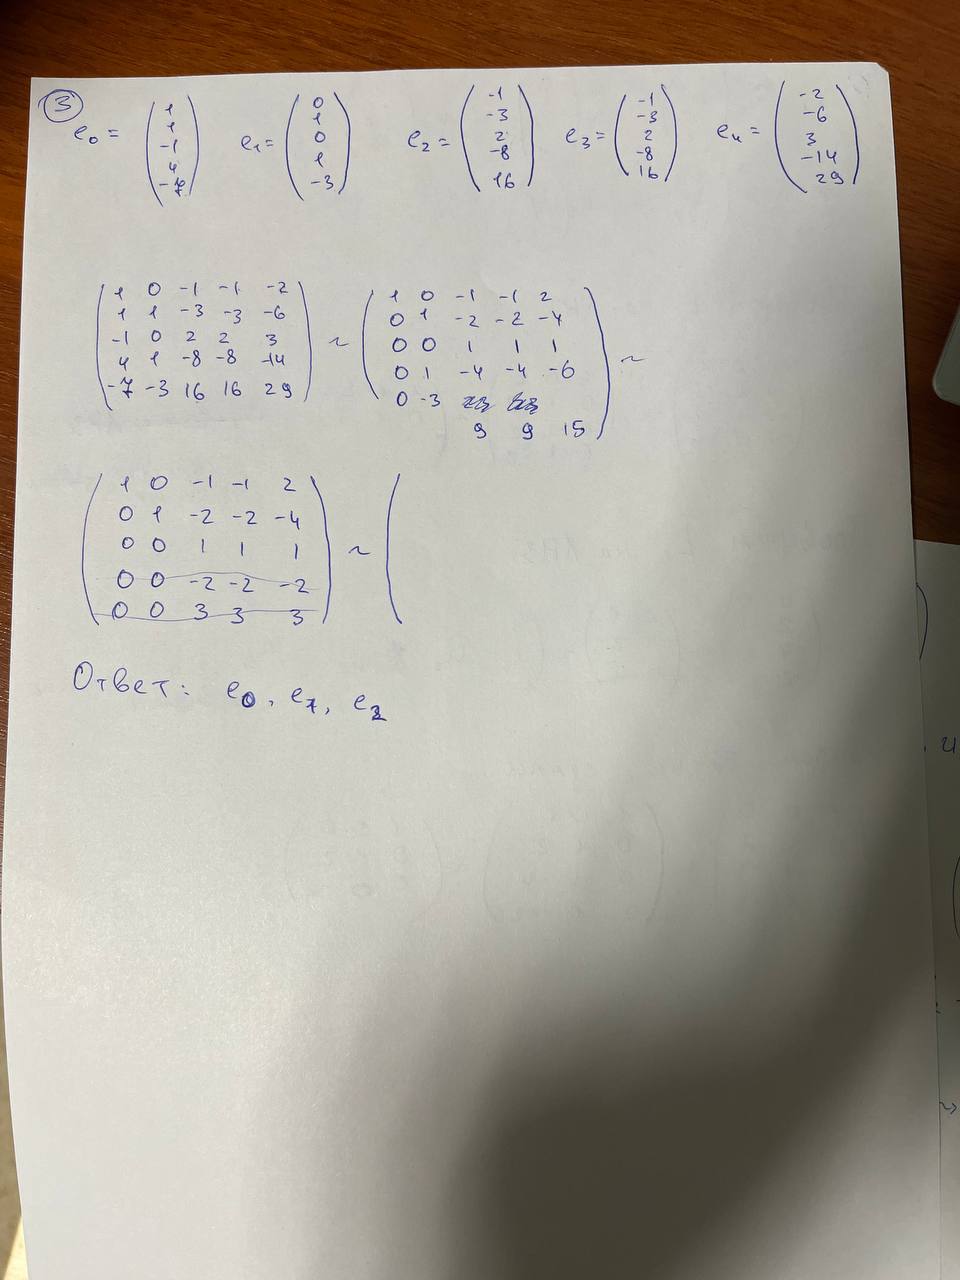 3
e₀ = (1 1 -1 4 -7) e₁ = (0 1 0 1 -3) e₂ = (-1 -3 2 -8 16) e₃ = (-1 -3 2 -8 16) e₄ = (-2 -6 3 -14 29)
1 0 -1 -1 -2
1 1 -3 -3 -6
-1 0 2 2 3
4 1 -8 -8 -14
-7 -3 16 16 29
~
1 0 -1 -1 2
0 1 -2 -2 -4
0 0 1 1 1
0 1 -4 -4 -6
0 -3
9 9 15
~
1 0 -1 -1 2
0 1 -2 -2 -4
0 0 1 1 1
0 0 -2 -2 -2
0 0 3 3 3
~ (
Ответ: e₀, e₁, e₂